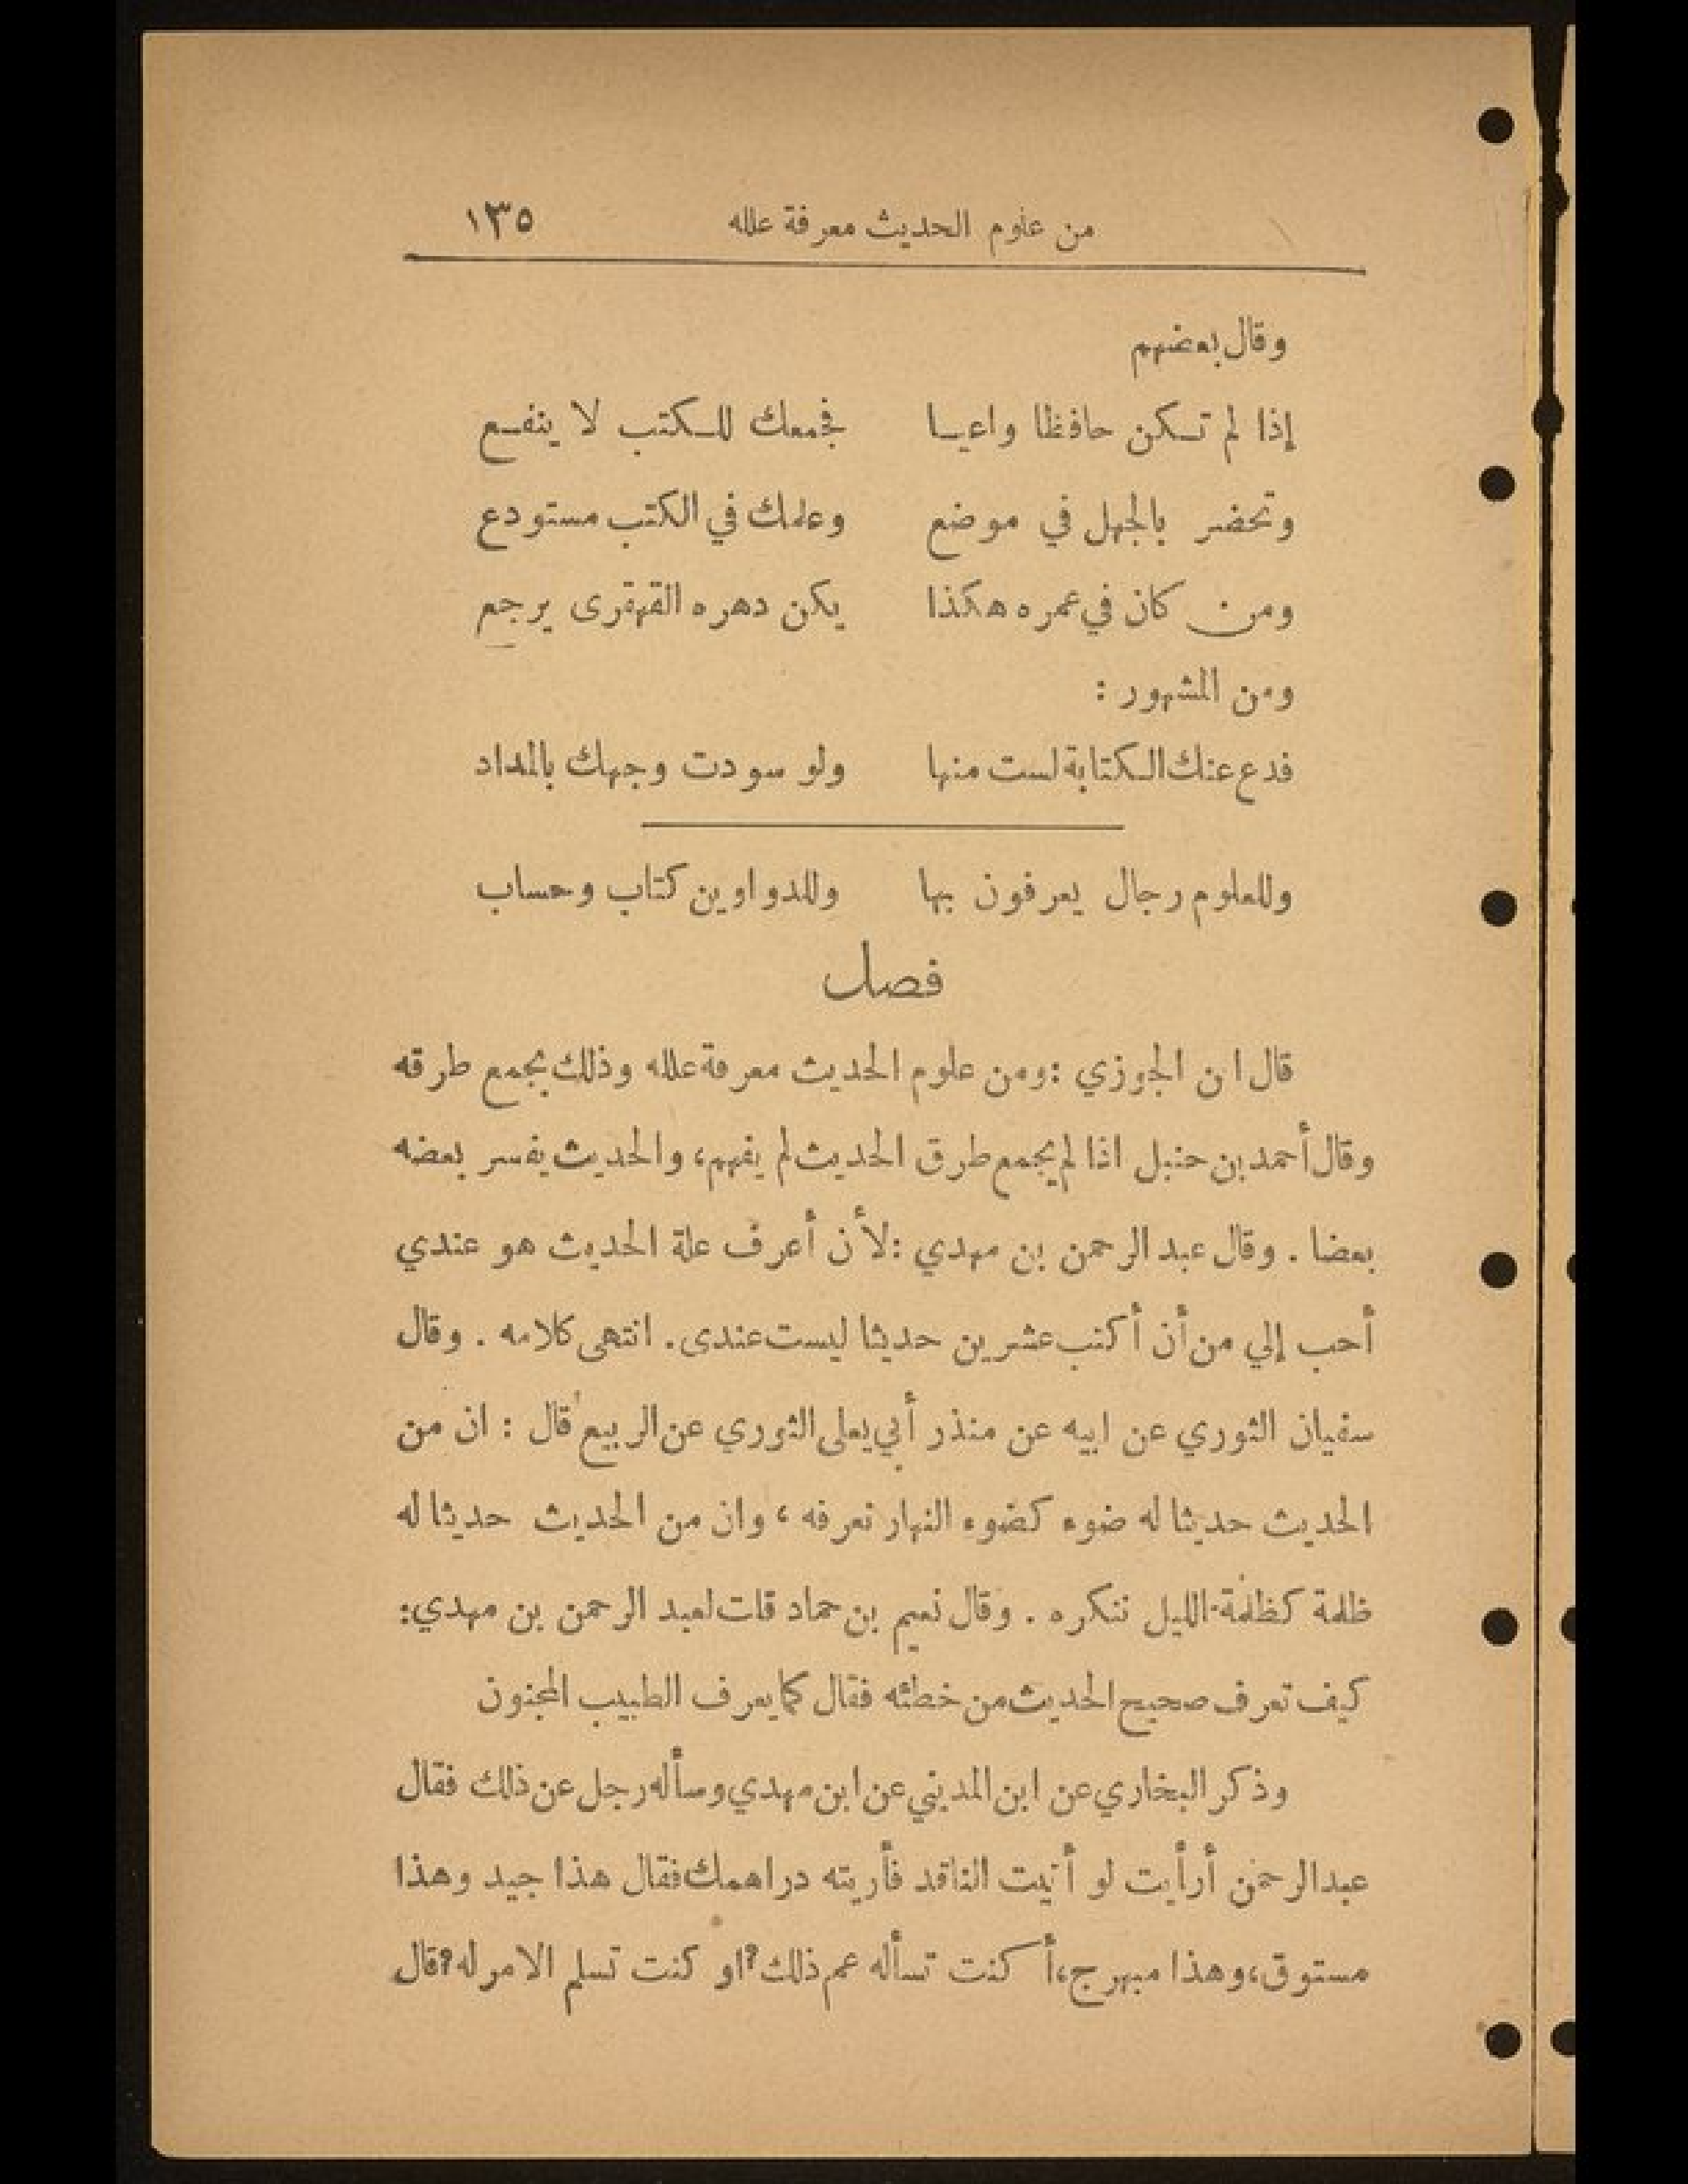 من علوم الحديث معرفة علله ١٣٥
وقال بعضهم
إذا لم تكن حافظا واعيا فجمعك للكتب لا ينفع
وتحضر بالجهل في موضع وعلمك في الكتب مستودع
ومن كان في عمره هكذا يكن دهره القهقرى يرجع
ومن المشهور :
فدع عنك الكتابة لست منها ولو سودت وجهك بالمداد
وللعلوم رجال يعرفون بها وللدواوين كتاب وحساب
فصل
قال ا ن الجوزي : ومن علوم الحديث معرفة علله وذلك بجمع طرقه
وقال أحمد بن حنبل اذا لم يجمع طرق الحديث لم يفهم، والحديث يفسر بعضه
بعضا . وقال عبد الرحمن بن مهدي : لأن أعرف علة الحديث هو عندي
أحب إلي من أن أكتب عشرين حديثا ليست عندى . انتهى كلامه . وقال
سفيان الثوري عن ابيه عن منذر أبي يعلى الثوري عن الربيع قال : ان من
الحديث حديثا له ضوء كضوء النهار نعرفه ، وان من الحديث حديثا له
ظلمة كظلمة الليل ننكره . وقال نعيم بن حماد قلت لعبد الرحمن بن مهدي:
كيف تعرف صحيح الحديث من خطئه فقال كما يعرف الطبيب المجنون
وذكر البخاري عن ابن المديني عن ابن مهدي وسأله رجل عن ذلك فقال
عبد الرحمن أرأيت لو أتيت الناقد فأريته دراهمك فقال هذا جيد وهذا
مستوق، وهذا مبهرج، أكنت تسأله عم ذلك؟ او كنت تسلم الامر له؟ قال